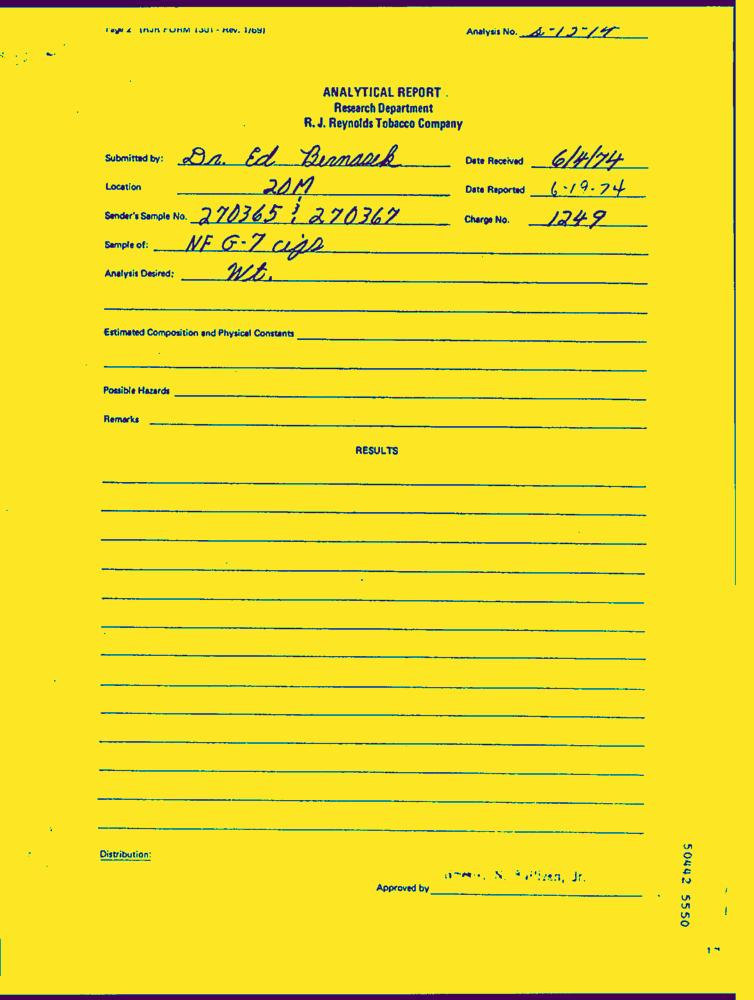 Page 2 (RJR FORM 1301 - Rev. 1/69)
Analysis No.
ANALYTICAL REPORT
Research Department
R. J. Reynolds Tobacco Company
Submitted by: Dr. Ed Bernasek Date Received 6/4/74
Location 20M Date Reported 6-19-74
Sender's Sample No. 270365 & 270367 Charge No. 1249
Sample of: NF G-7 cigs
Analysis Desired: Wt.
Estimated Composition and Physical Constants
Possible Hazards
Remarks
RESULTS
Distribution:
Jr.
Approved by
50442 5550